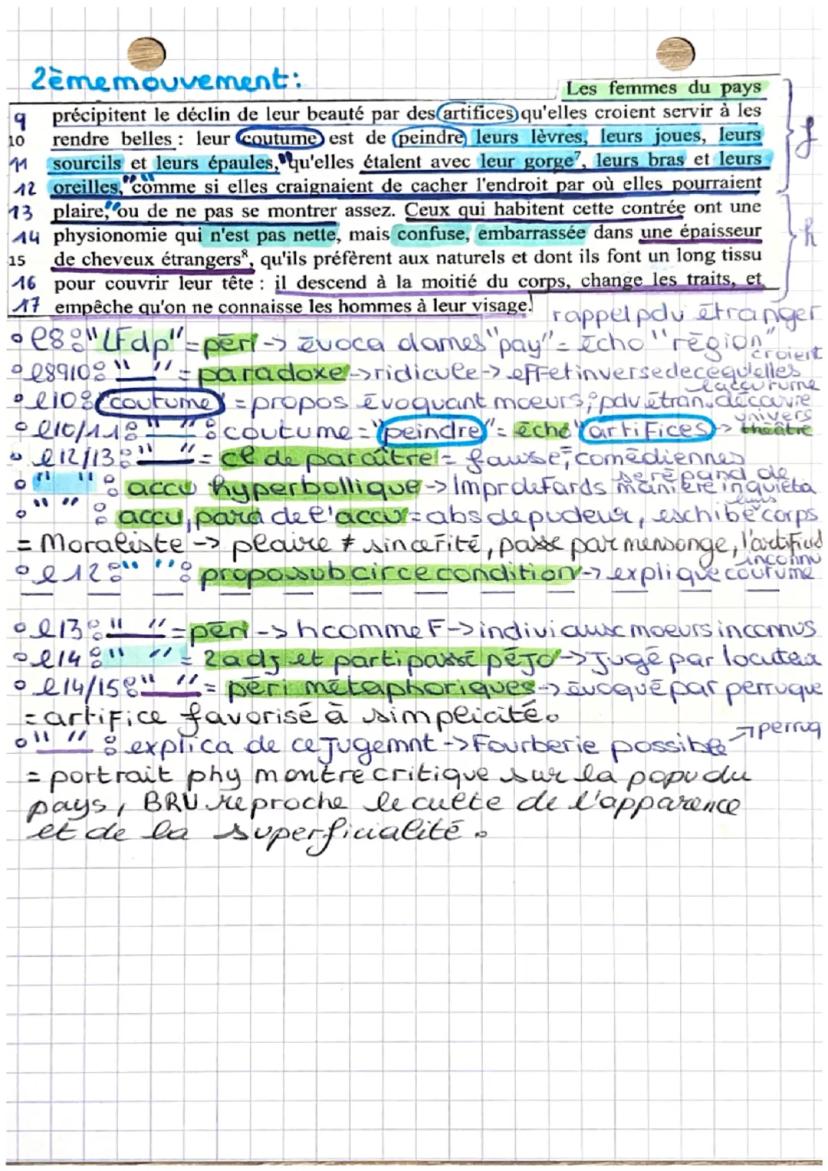 2èmemouvement:
Les femmes du pays
9 précipitent le déclin de leur beauté par des artifices qu'elles croient servir à les
10 rendre belles : leur coutume est de peindre leurs lèvres, leurs joues, leurs
11 sourcils et leurs épaules, "qu'elles étalent avec leur gorge⁷, leurs bras et leurs
12 oreilles, "comme si elles craignaient de cacher l'endroit par où elles pourraient
13 plaire, "ou de ne pas se montrer assez. Ceux qui habitent cette contrée ont une
14 physionomie qui n'est pas nette, mais confuse, embarrassée dans une épaisseur
15 de cheveux étrangers⁸, qu'ils préfèrent aux naturels et dont ils font un long tissu
16 pour couvrir leur tête : il descend à la moitié du corps, change les traits, et
17 empêche qu'on ne connaisse les hommes à leur visage.
f
h
rappel pdv étranger
° l8: "LFdp" = péri -> évoca dames "pay" = écho "région"
croient
° l8910: " " = paradoxe -> ridicule -> effet inverse de ce qu'elles
° l10: coutume = propos évoquant mœurs; pdv étran. découvre
° l10/11: " " : coutume = "peindre" = écho "artifices" -> univers théâtre
° l12/13: " " = cl de paraître = fausse, comédiennes
° " " : accu hyperbollique -> Impr de Fards se répand de manière inquiéta
° " " : accu, para de l'accu = abs de pudeur, eschibe leurs corps
= Moraliste -> plaire ≠ sincérité, passe par mensonge, l'artifice
° l12: " " : propo sub circe condition -> explique coutume inconnu
° l13: " " = péri -> h comme F -> indivi aux moeurs inconnus
° l14: " " = 2 adj et parti passé péjo -> Jugé par locuteur
° l14/15: " " = péri métaphoriques -> évoqué par perruque
= artifice favorisé à simplicité.
° " " : explica de ce Jugemnt -> Fourberie possible ↗ perruq
= portrait phy montre critique sur la popu du
pays, BRU reproche le culte de l'apparence
et de la superficialité.